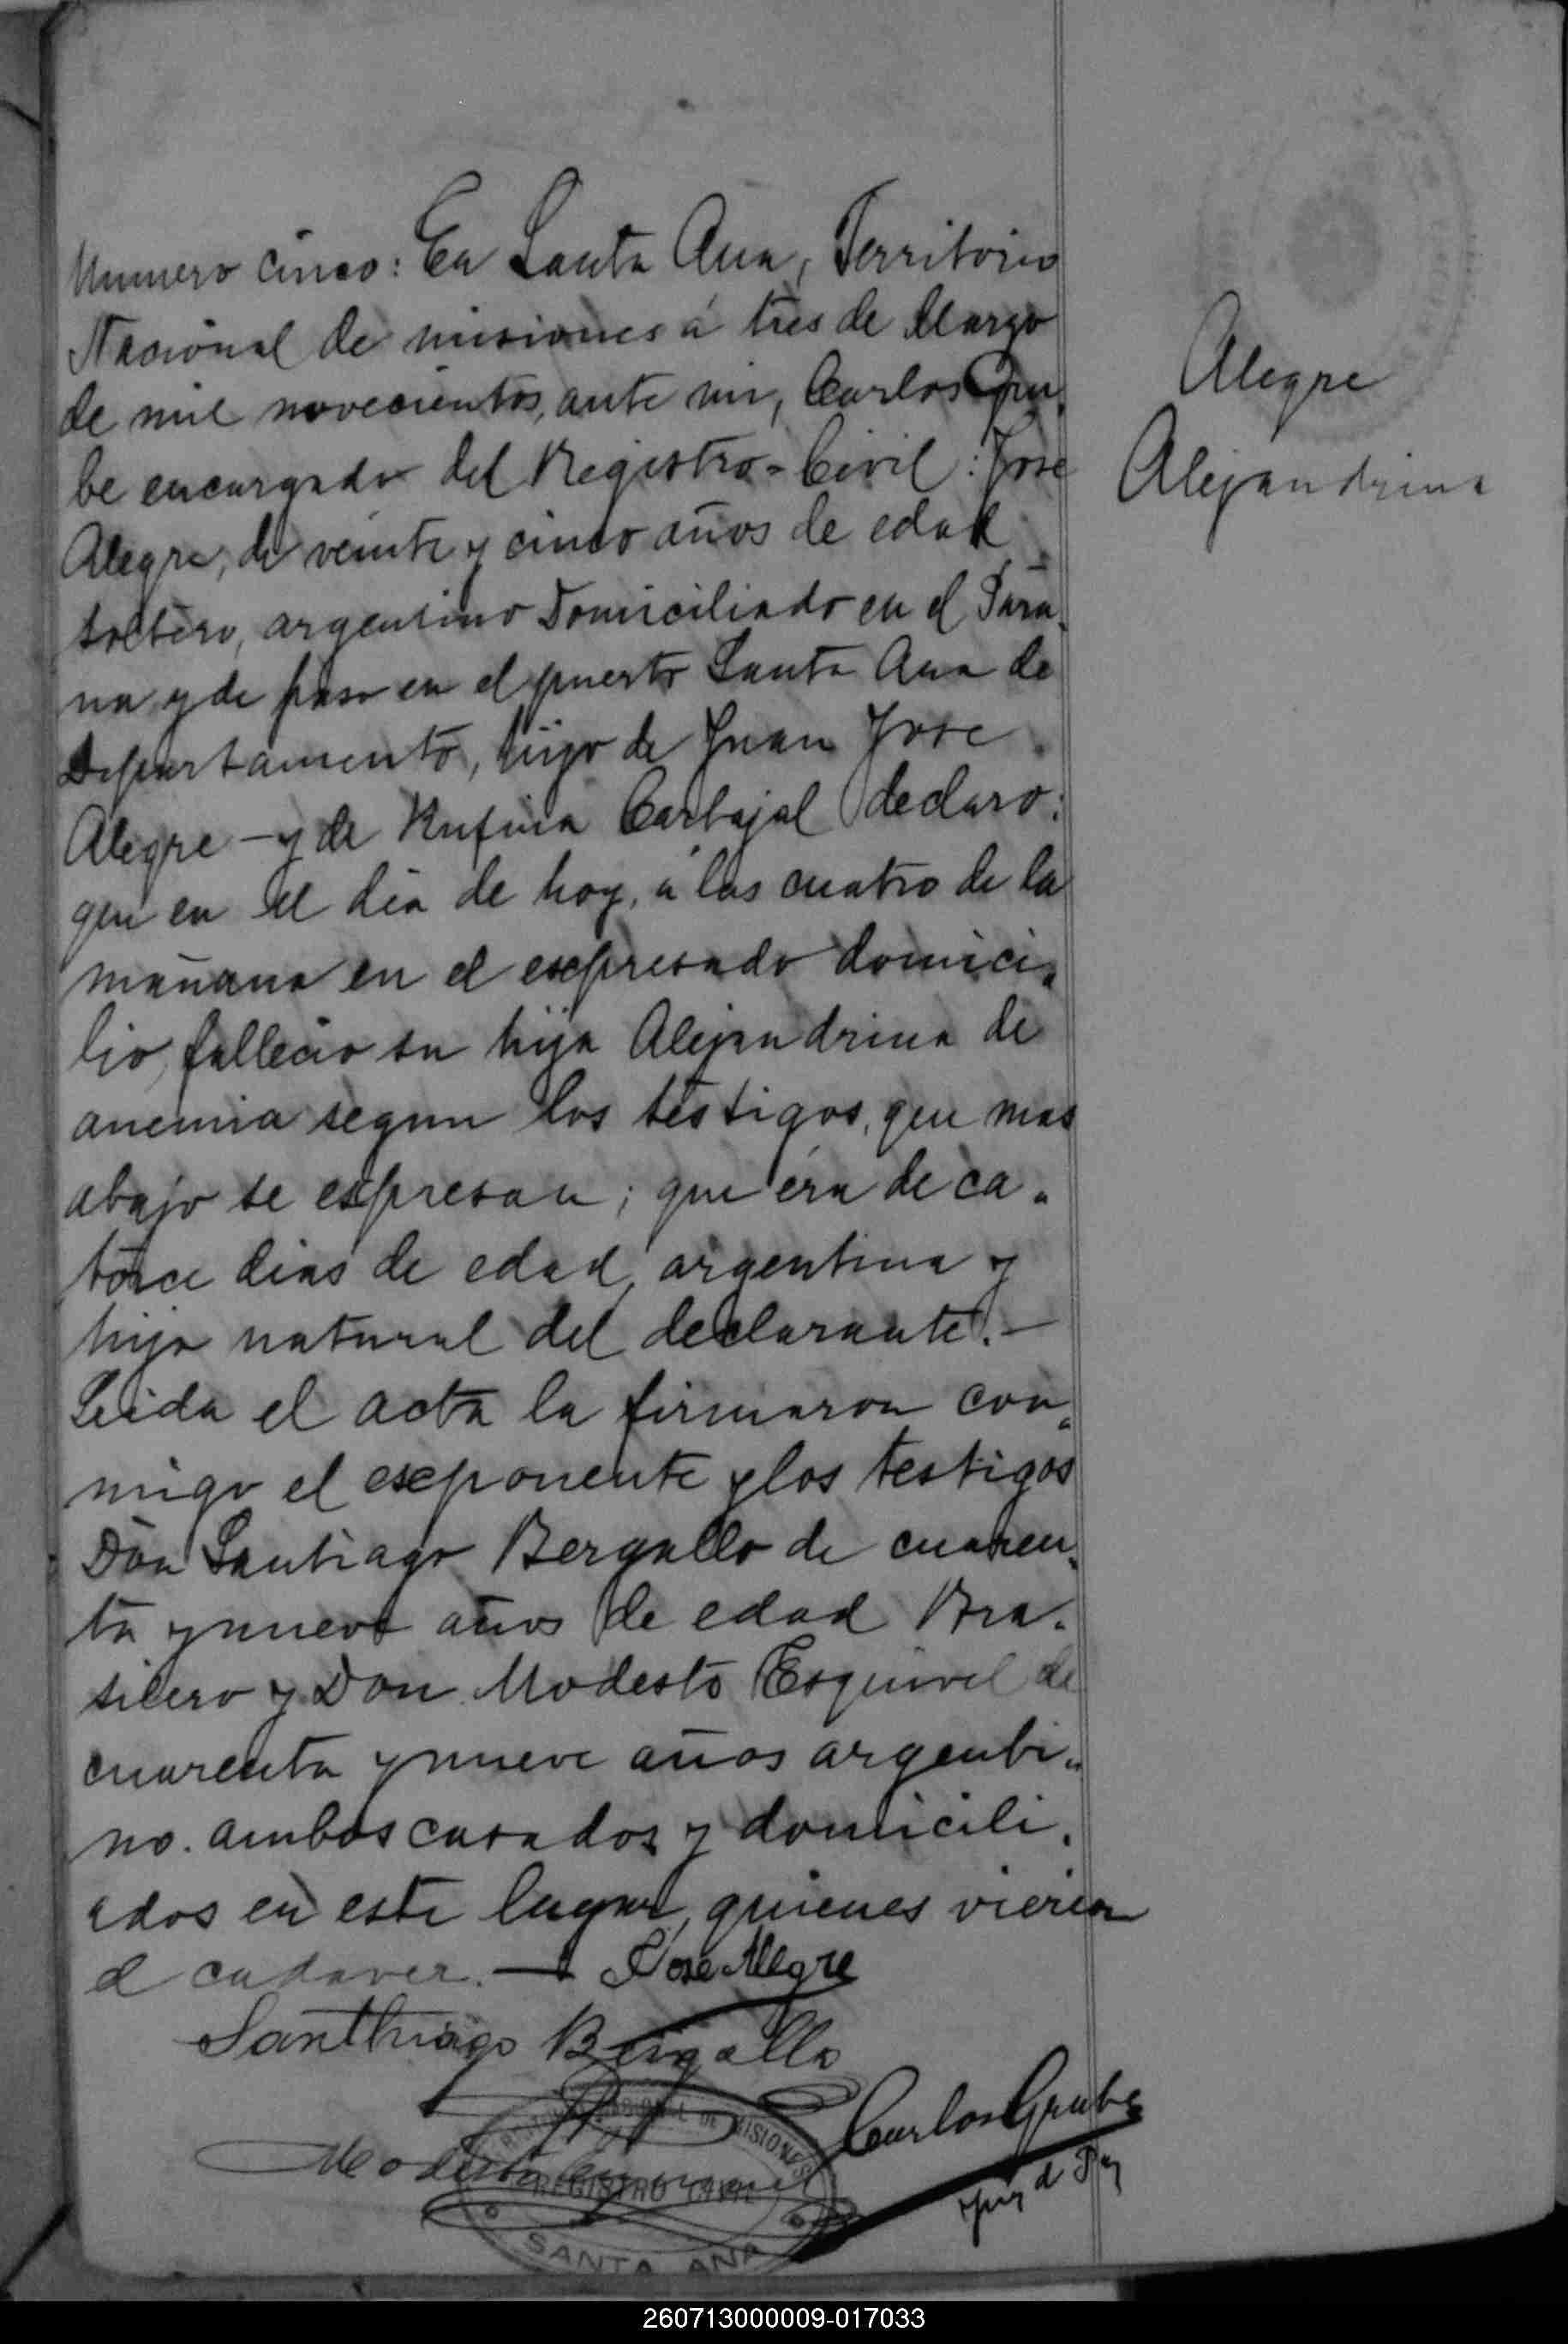 Numero cinco: En Santa Ana, Territorio
Nacional de misiones á tres de Marzo
de mil novecientos, ante mi, Carlos Gru-
be encargado del Registro-Civil: Jose
Alegre, de veinte y cinco años de edad
soltero, argentino Domiciliado en el Para-
na y de paso en el puerto Santa Ana de
Departamento, hijo de Juan Jose
Alegre - y de Rufina Carbajal declaro:
que en el dia de hoy, á las cuatro de la
mañana en el expresado domici-
lio, fallecio su hija Alejandrina de
anemia segun los testigos, que mas
abajo se espresan; que era de ca-
torce dias de edad, argentina y
hija natural del declarante.-
Leida el acta la firmaron con-
migo el exponente y los testigos
Don Santiago Bergallo de cuaren-
ta y nueve años de edad Bra-
silero y Don Modesto Esquivel de
cuarenta y nueve años argenti-
no. ambos casados y domicili-
ados en este lugar, quienes vieron
el cadaver. — Jose Alegre
Santhiago Bergallo
Carlos Grube
Juez de Paz
Modesto Esquivel
DE MISIONES
REGISTRO CIVIL
SANTA ANA
Alegre
Alejandrina
260713000009-017033